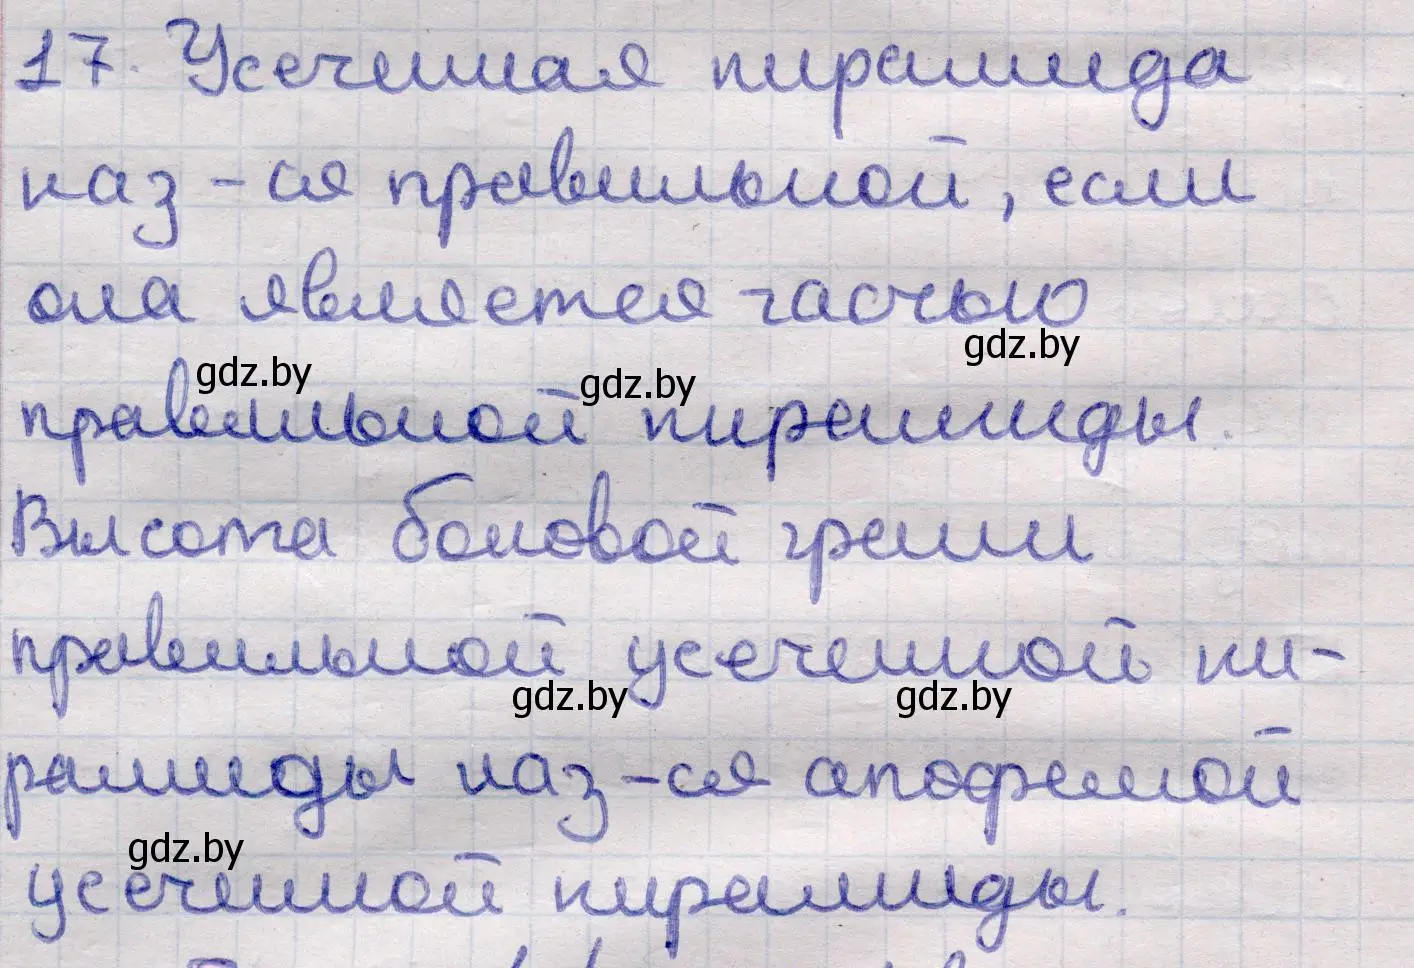 17. Усеченная пирамида
наз-ся правильной, если
она является частью
gdz.by
gdz.by
gdz.by
правильной пирамиды.
Высота боковой грани
правильной усеченной пи-
gdz.by
gdz.by
рамиды наз-ся апофемой
gdz.by
усеченной пирамиды.